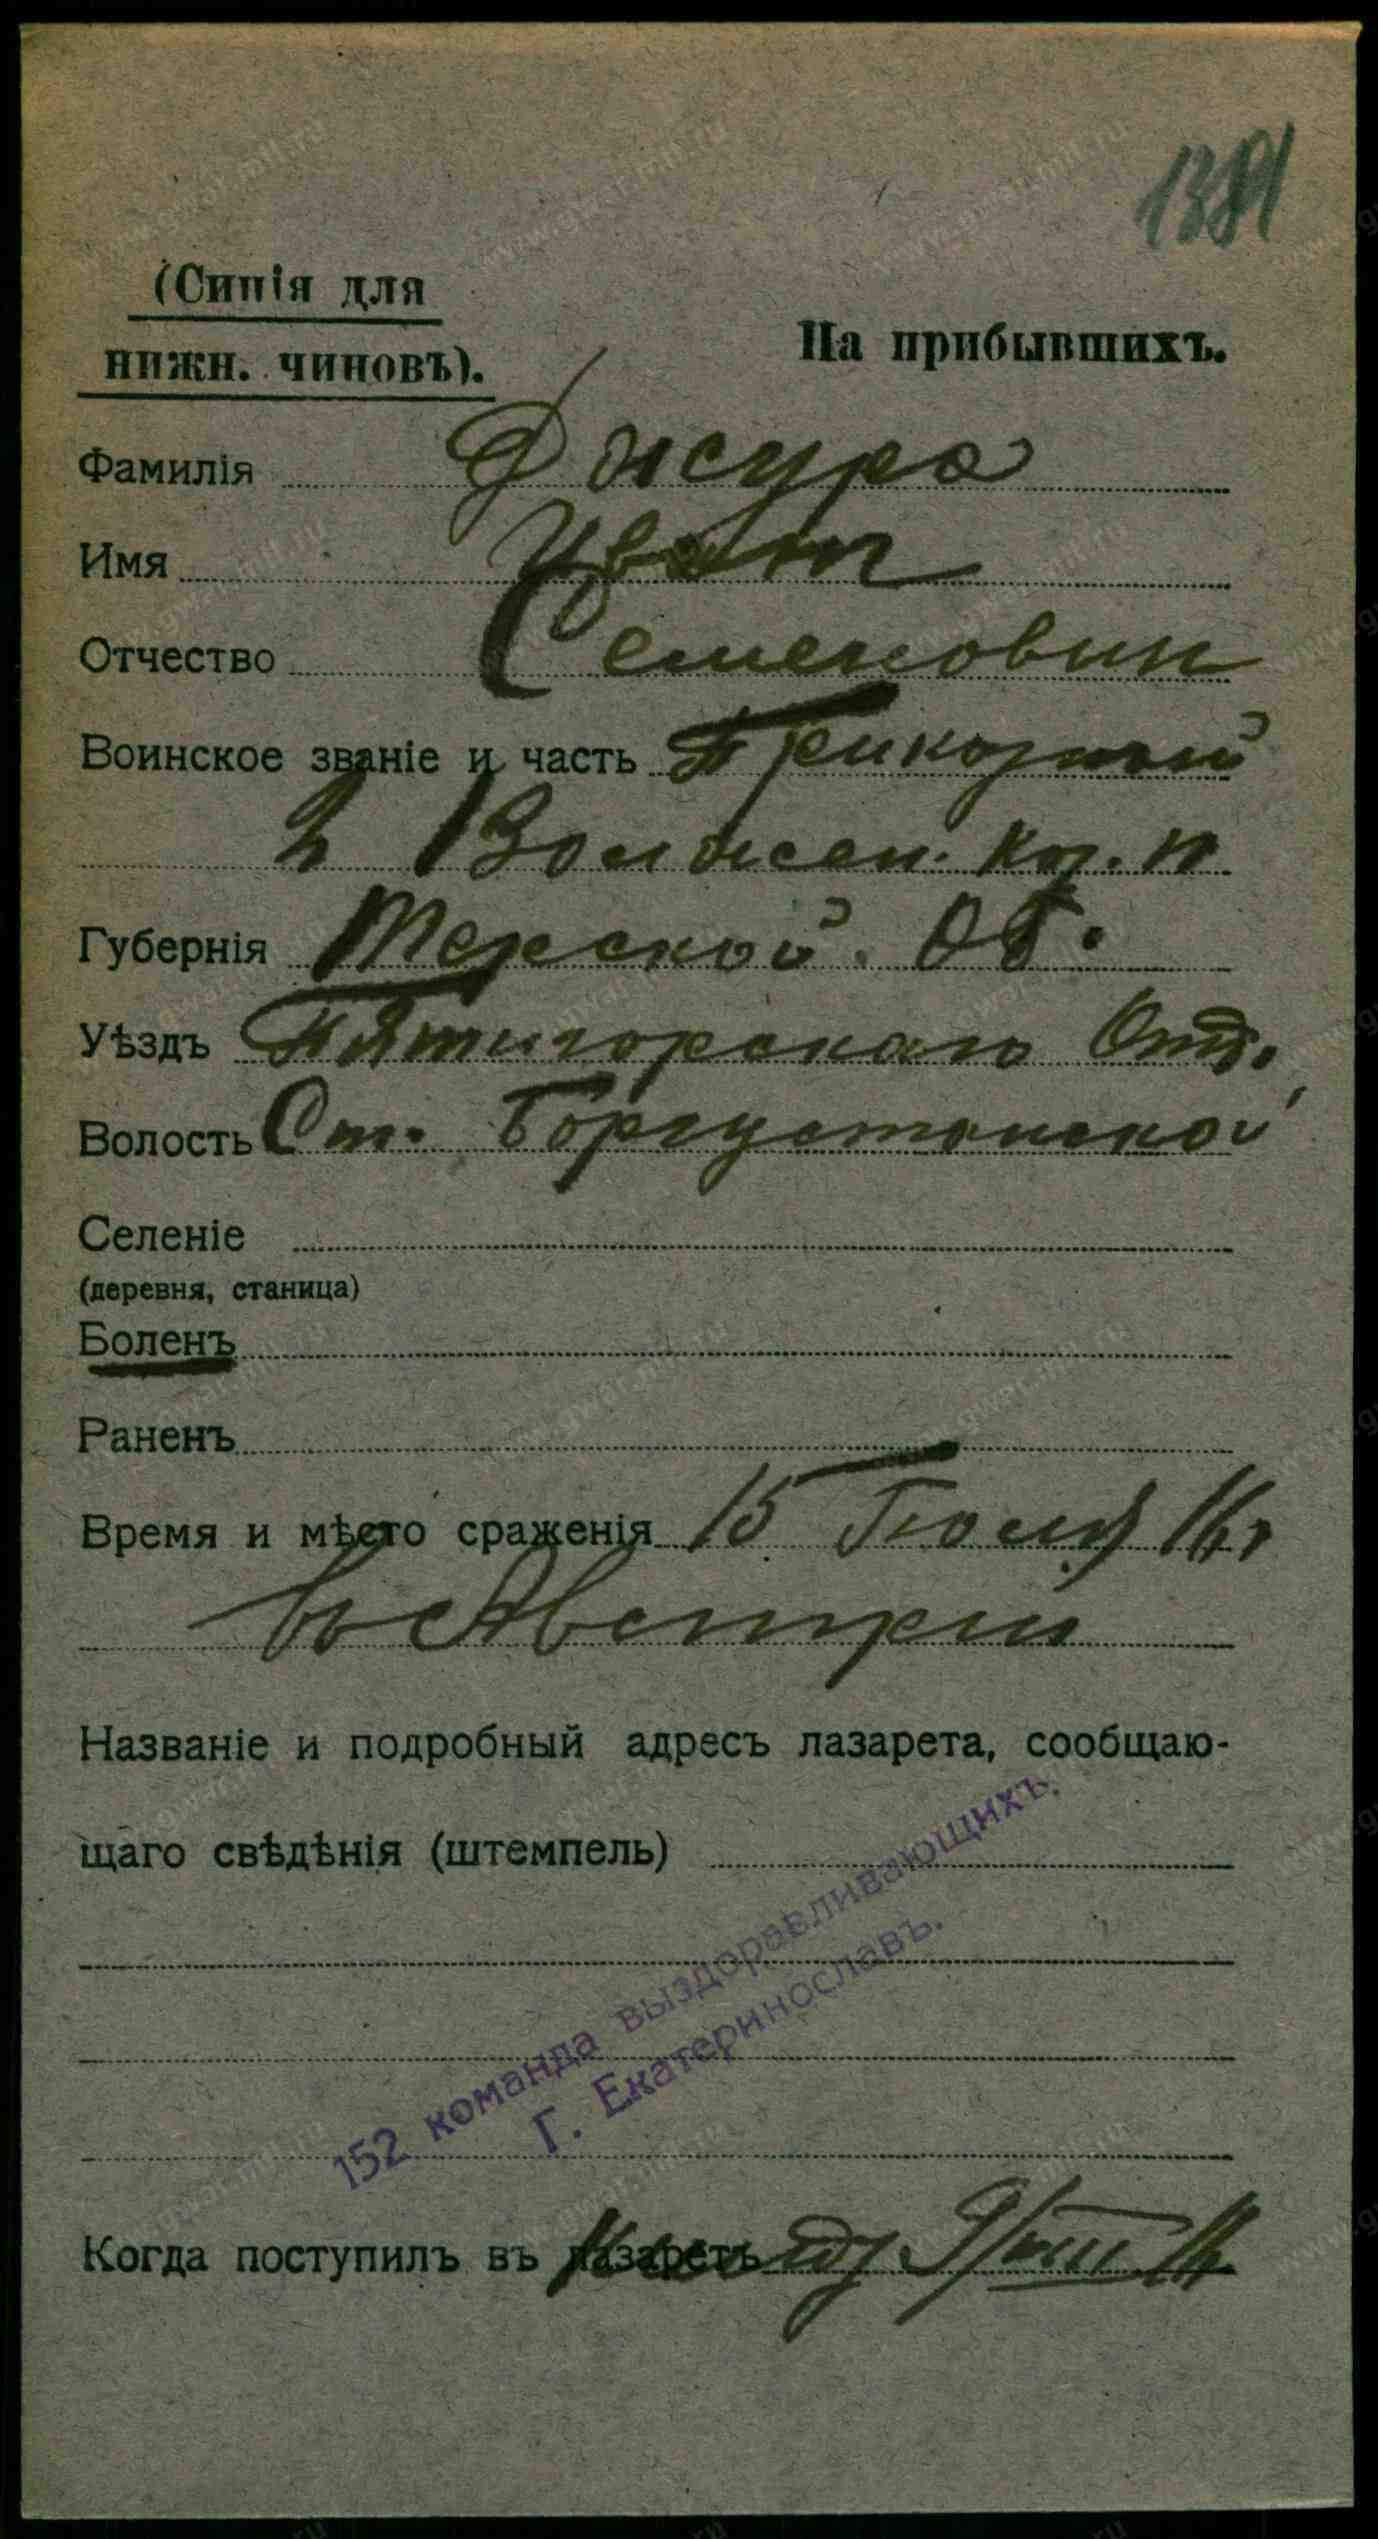 1391
(Синія для
нижн. чиновъ).
На прибывшихъ.
Фамилія Джура
Имя Иванъ
Отчество Семенович
Воинское званіе и часть Приказный
2 Волжск. каз. п
Губернія Терской. Об.
Уѣздъ Пятигорскаго Отд.
Волость Ст. Боргустанской
Селеніе
(деревня, станица)
Боленъ
Раненъ
Время и мѣсто сраженія 15 Іюля 16 г
въ Австріи
Названіе и подробный адресъ лазарета, сообщаю-
щаго свѣдѣнія (штемпель)
152 команда выздоравливающихъ.
Г. Екатеринославъ.
Когда поступилъ въ лазаретъ